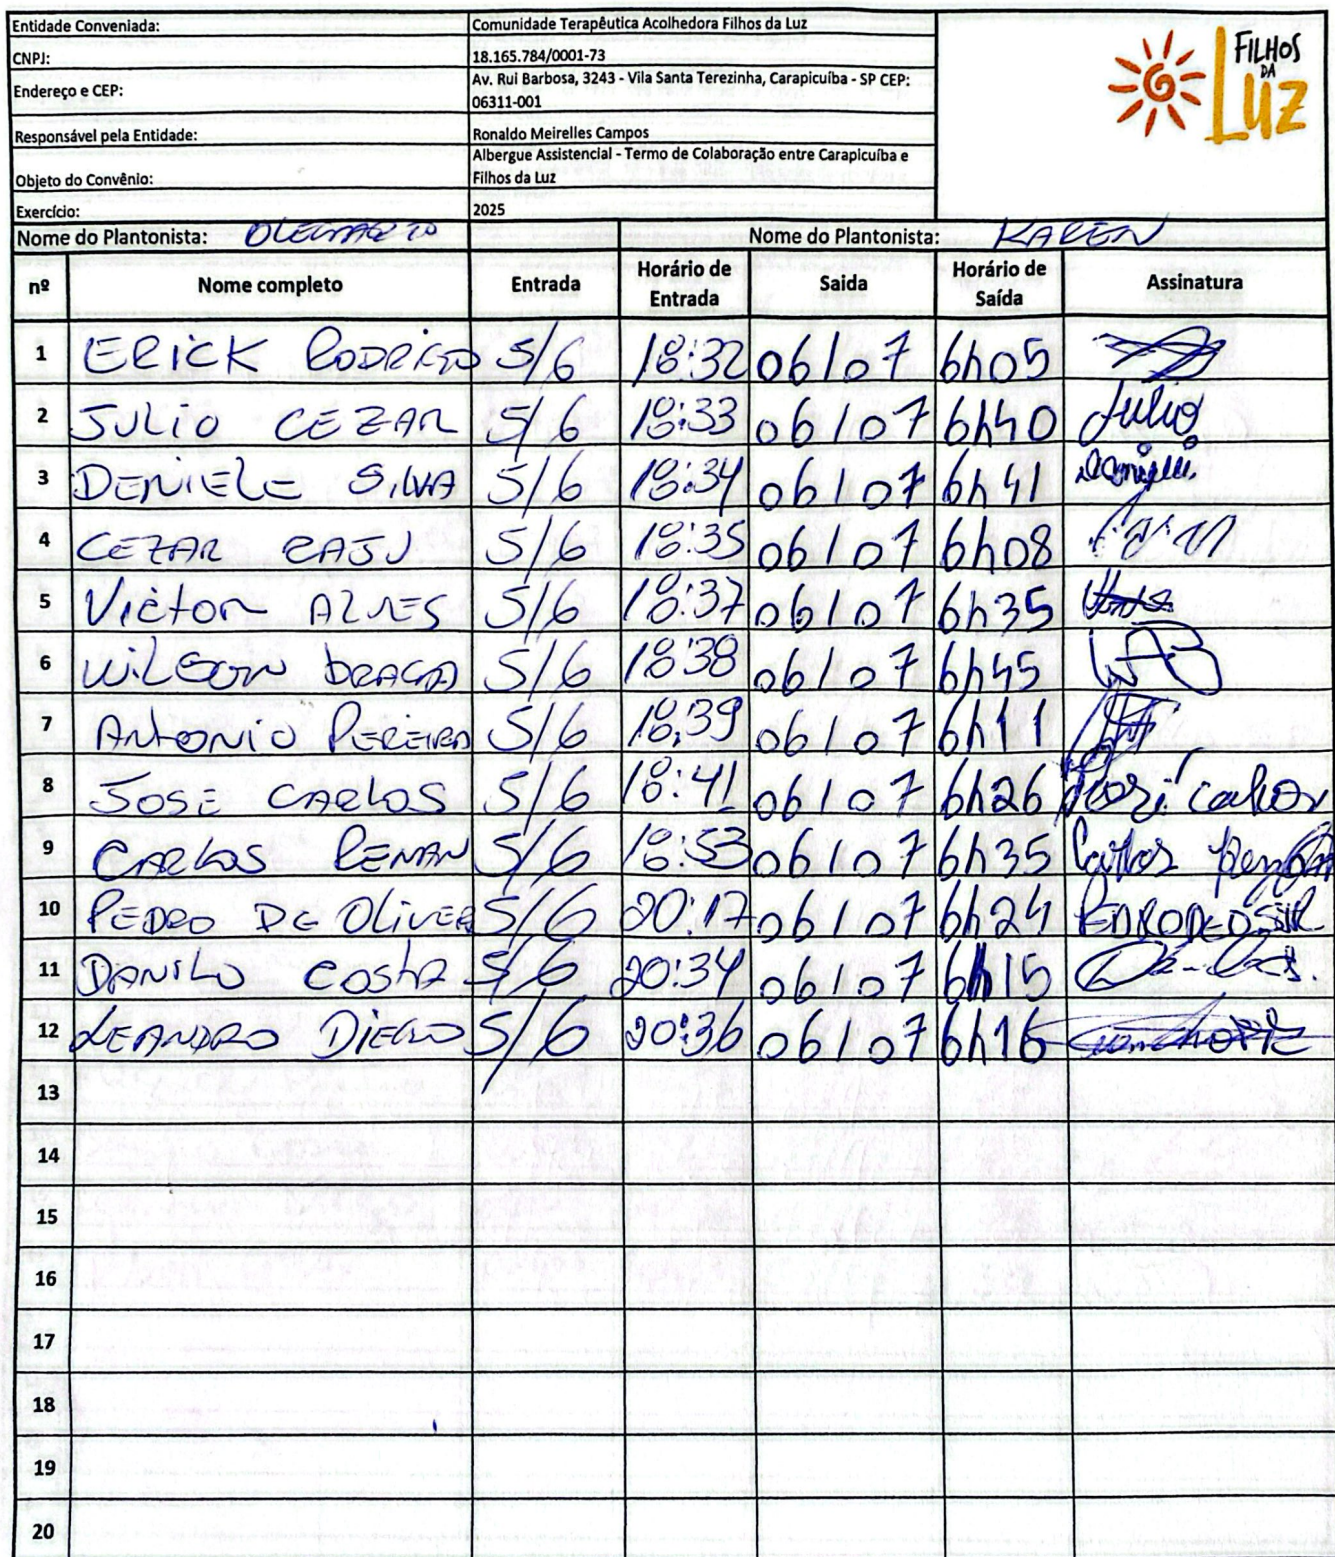 Entidade Conveniada: Comunidade Terapêutica Acolhedora Filhos da Luz
CNPJ: 18.165.784/0001-73
Endereço e CEP: Av. Rui Barbosa, 3243 - Vila Santa Terezinha, Carapicuíba - SP CEP:
06311-001
Responsável pela Entidade: Ronaldo Meirelles Campos
Objeto do Convênio: Albergue Assistencial - Termo de Colaboração entre Carapicuíba e
Filhos da Luz
Exercício: 2025
FILHOS
DA
LUZ
Nome do Plantonista: OLEGARIO Nome do Plantonista: KAREN
nº Nome completo Entrada Horário de Entrada Saida Horário de Saída Assinatura
1 ERICK RODRIGO 5/6 18:32 06/07 6h05
2 JULIO CEZAR 5/6 18:33 06/07 6h40 Julio
3 DENIELE SILVA 5/6 18:34 06/07 6h41
4 CEZAR 5/6 18:35 06/07 6h08
5 Victor ALVES 5/6 18:37 06/07 6h35
6 WILSON BRAGA 5/6 18:38 06/07 6h45 WAB
7 ANTONIO PEREIRA 5/6 18:39 06/07 6h11
8 JOSE CARLOS 5/6 18:41 06/07 6h26 José Carlos
9 CARLOS RENAN 5/6 18:53 06/07 6h35 Carlos
10 PEDRO DE OLIVER 5/6 20:17 06/07 6h24
11 DANILO COSTA 5/6 20:34 06/07 6h15
12 LEANDRO DIEGO 5/6 20:36 06/07 6h16
13
14
15
16
17
18
19
20